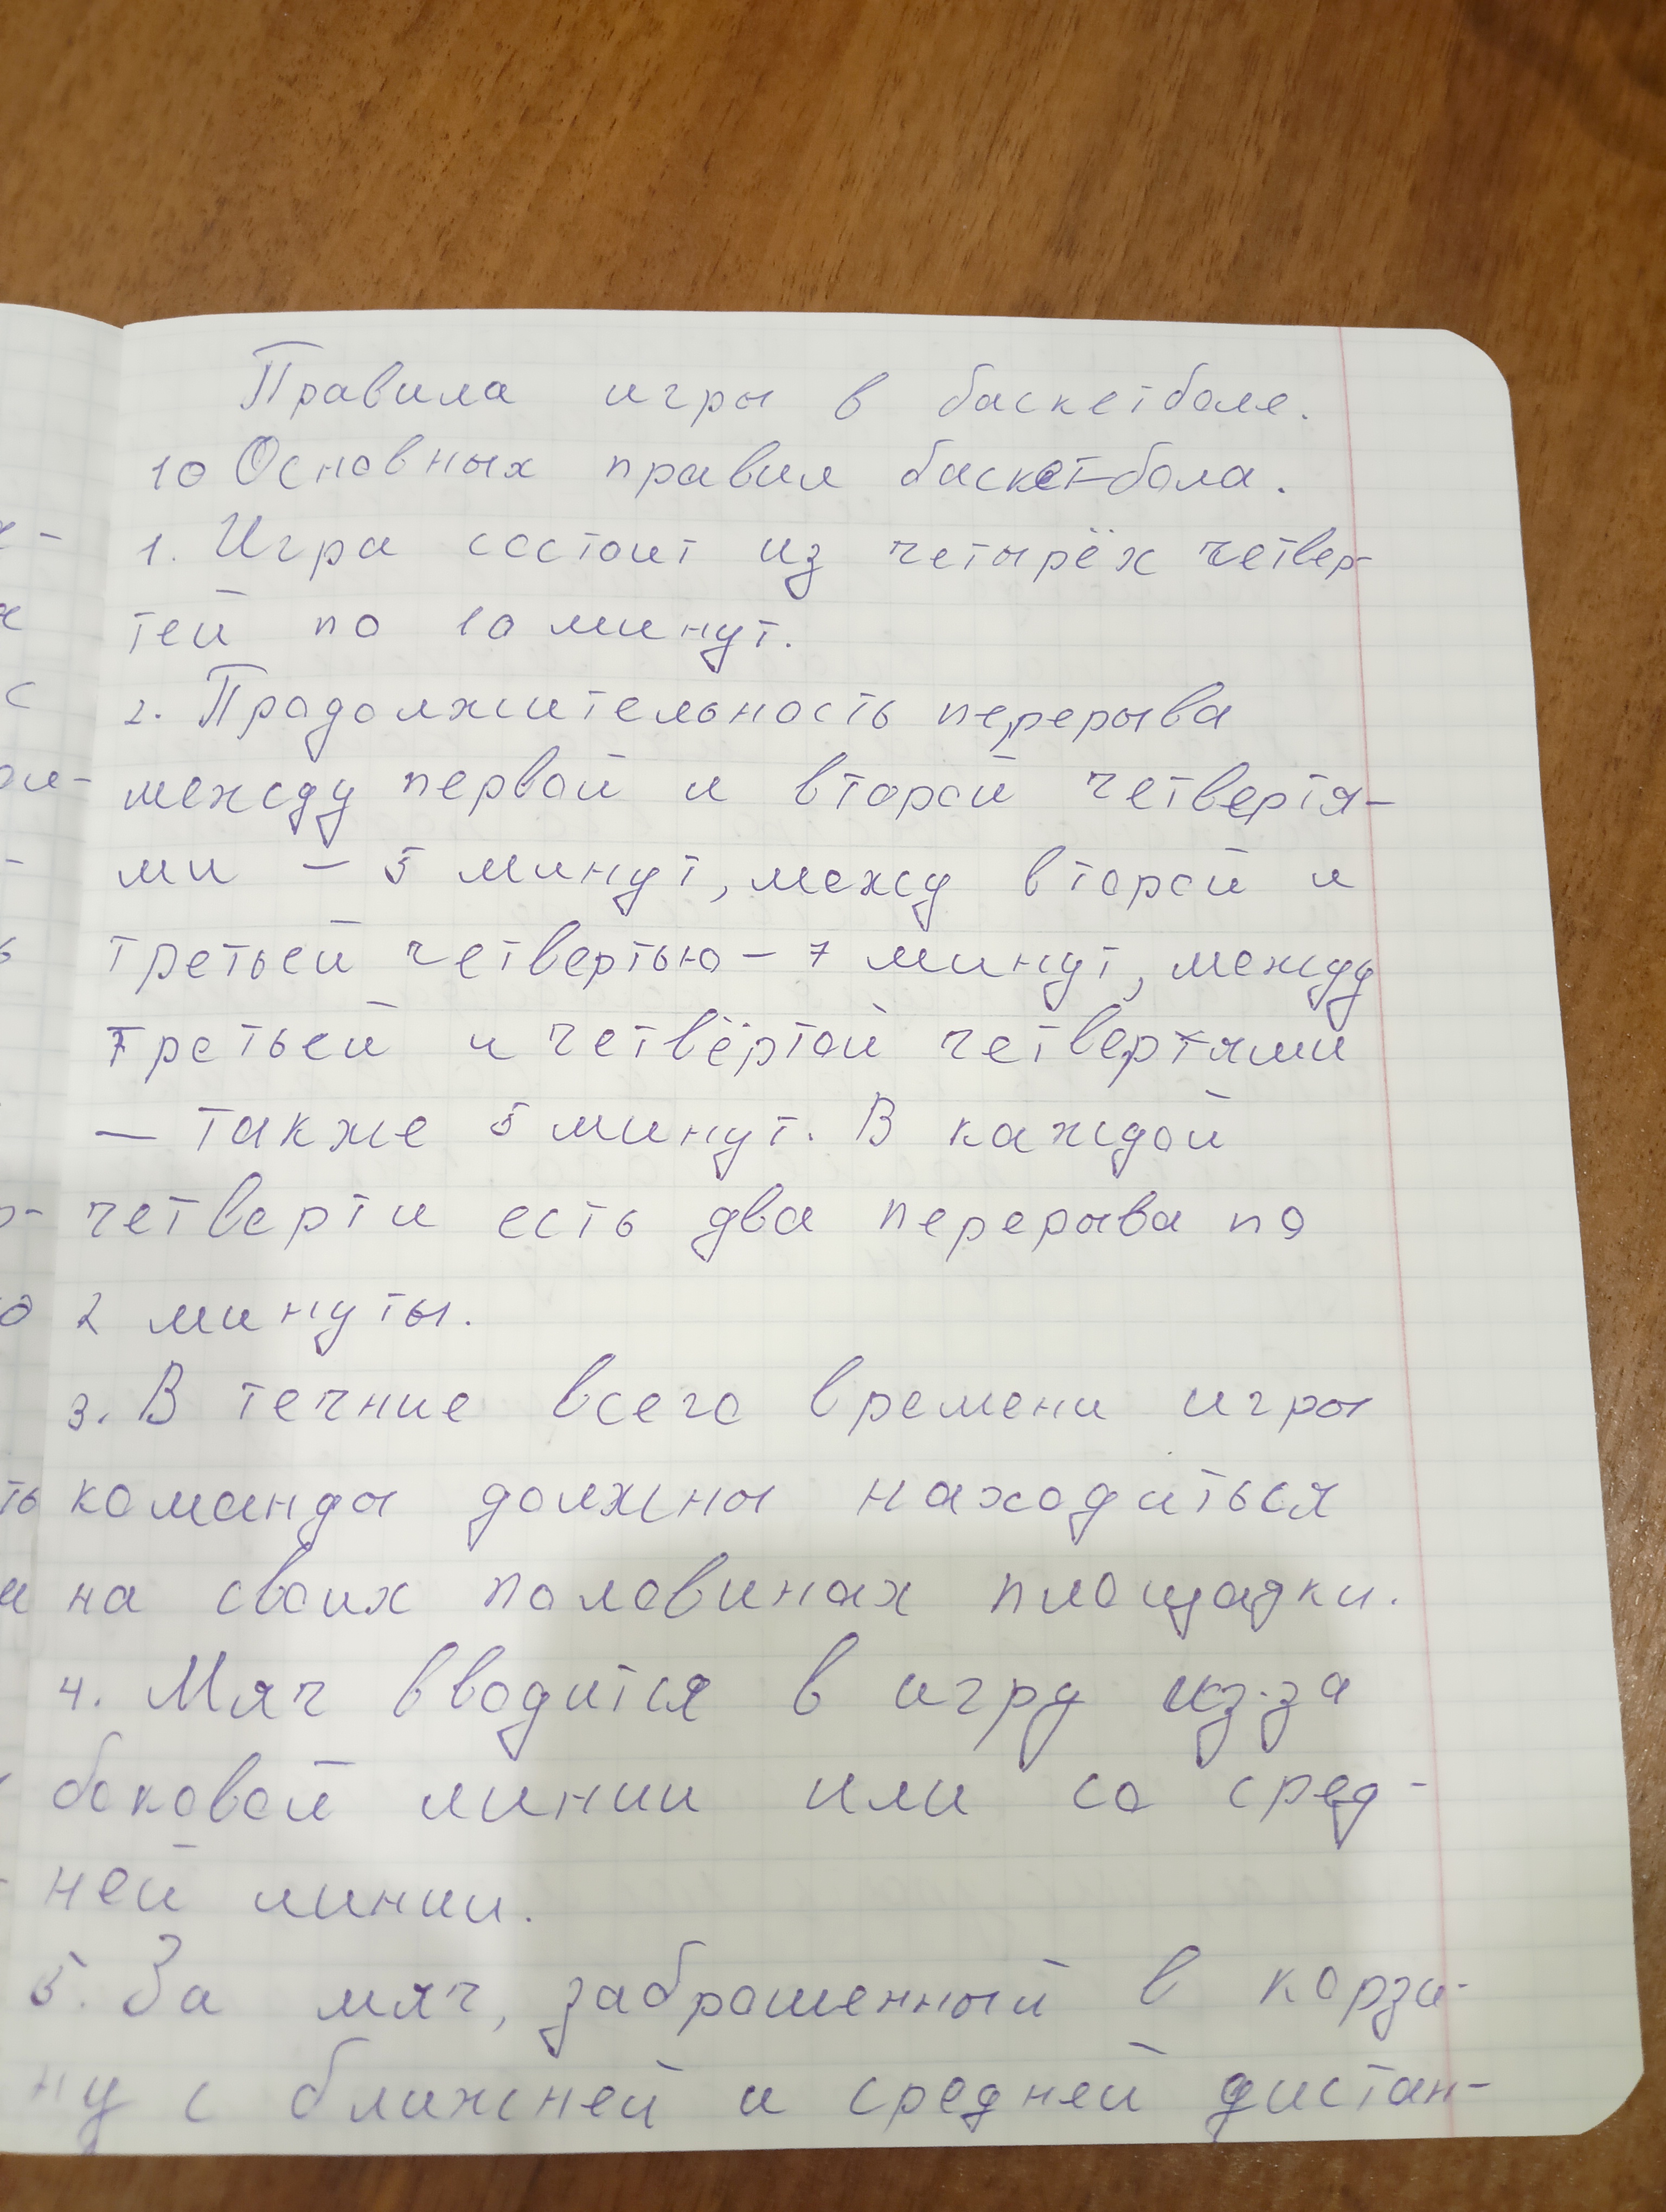 Правила игры в баскетболе.
10 Основных правил баскетбола.
1. Игра состоит из четырёх четвер-
тей по 10 минут.
2. Продолжительность перерыва
между первой и второй четвертя-
ми – 5 минут, межу второй и
третьей четвертью – 7 минут, между
третьей и четвёртой четвертями
– также 5 минут. В каждой
четверти есть два перерыва по
2 минуты.
3. В течние всего времени игры
команды должны находиться
на своих половинах площадки.
4. Мяч вводится в игру из-за
боковой линии или со сред-
ней линии.
5. За мяч, заброшенный в корзи-
ну с ближней и средней дистан-